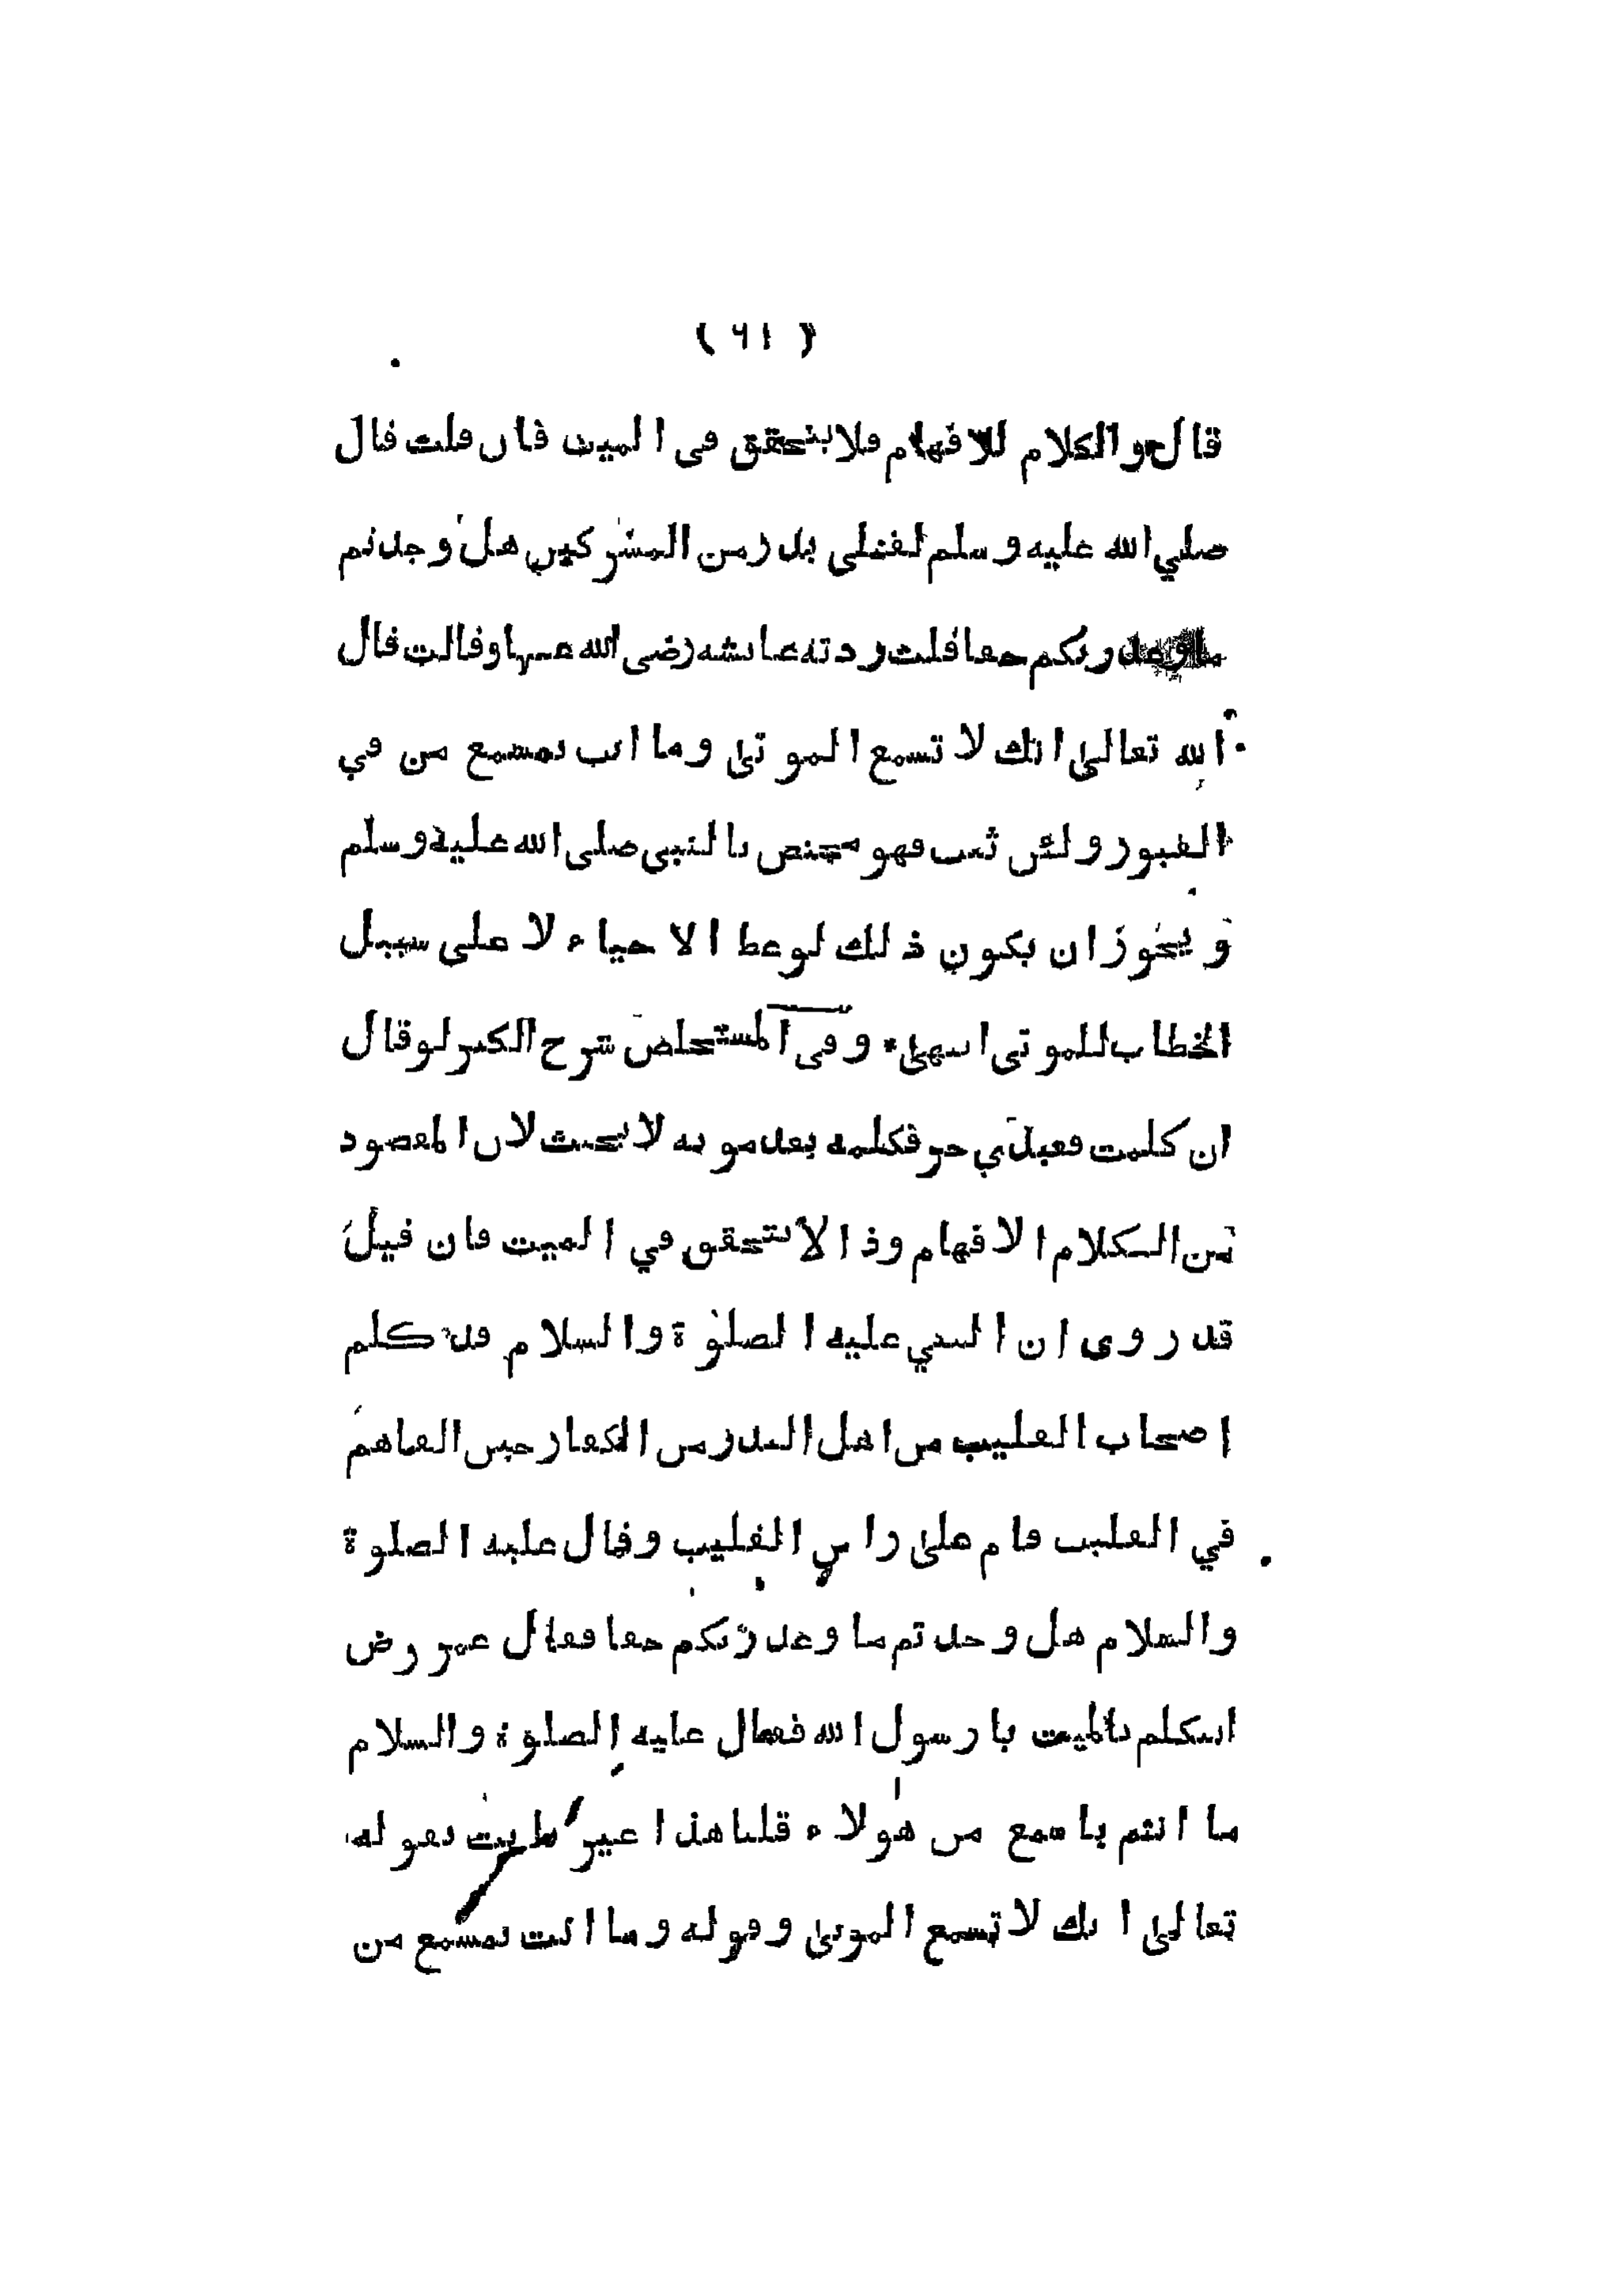 ( ٦١ )
قال والكلام للافهام فلا يتحقق فى الميت فان قلت قال
صلي الله عليه وسلم لقتلى بدر من المشركين هل وجدتم
ما وعد ربكم حقا قلت ردته عائشه رضى الله عنها وقالت قال
الله تعالىٰ انك لا تسمع الموتىٰ وما انت بمسمع من في
القبور ولئن ثبت فهو مختص بالنبى صلى الله عليه وسلم
و يجوز ان يكون ذلك لوعظ الاحياء لا على سبيل
الخطاب للموتى انتهىٰ * وفى المستخلص شرح الكنز لو قال
ان كلمت فعبدي حر فكلمه بعد موته لا يحنث لان المقصود
من الكلام الافهام وذا لا يتحقق في الميت فان قيل
قد روى ان النبي عليه الصلوٰة والسلام قد كلم
اصحاب القليب من اهل البدر من الكفار حين القاهم
في القليب قام علىٰ راس القليب وقال عليه الصلوة
والسلام هل وجدتم ما وعد ربكم حقا فقال عمر رض
اتتكلم بالميت يا رسول الله فقال عليه الصلوة والسلام
ما انتم باسمع من هٰولاء قلنا هذا غير ثابت بقوله
تعالىٰ انك لا تسمع الموتىٰ وقوله وما انت بمسمع من